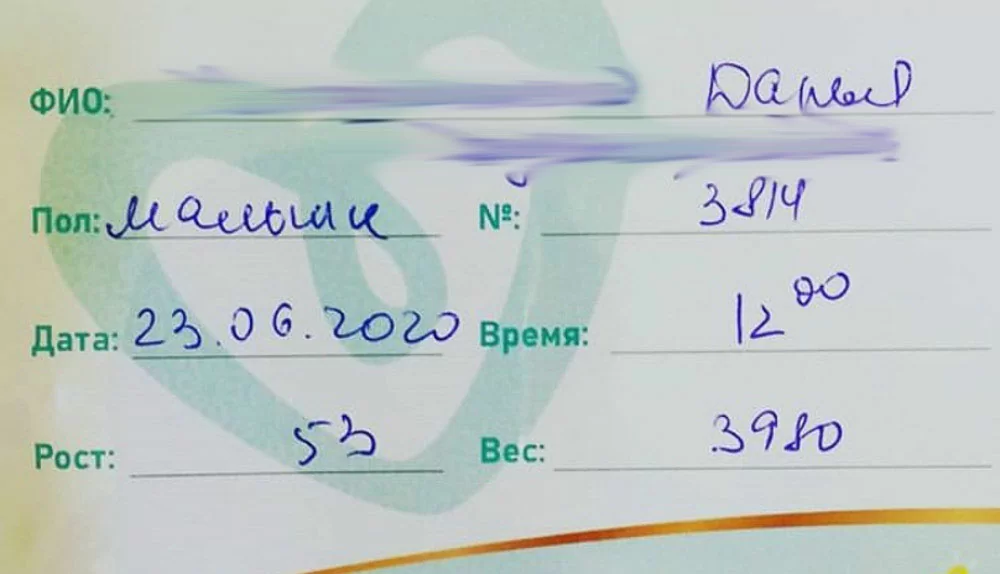 ФИО: Данил
Пол: мальчик №: 3814
Дата: 23.06.2020 Время: 12 00
Рост: 53 Вес: 3980